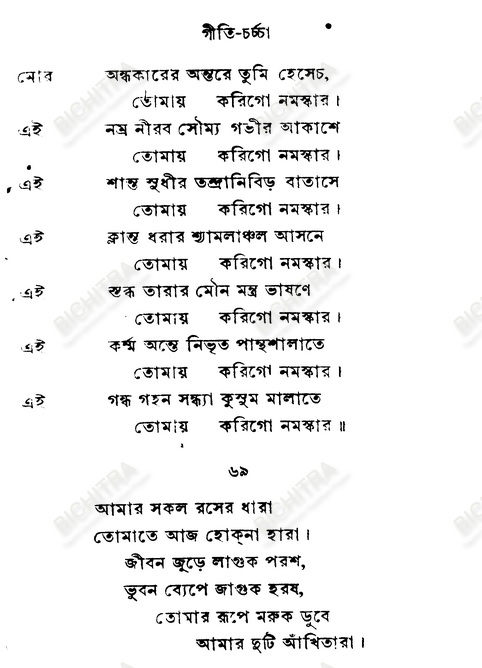 গীতি-চর্চ্চা
মোর অন্ধকারের অন্তরে তুমি হেসেচ,
তোমায় করিগো নমস্কার।
এই নম্র নীরব সৌম্য গভীর আকাশে
তোমায় করিগো নমস্কার।
এই শান্ত সুধীর তন্দ্রানিবিড় বাতাসে
তোমায় করিগো নমস্কার।
এই ক্লান্ত ধরার শ্যামলাঞ্চল আসনে
তোমায় করিগো নমস্কার।
এই স্তব্ধ তারার মৌন মন্ত্র ভাষণে
তোমায় করিগো নমস্কার।
এই কর্ম্ম অন্তে নিভৃত পান্থশালাতে
তোমায় করিগো নমস্কার।
এই গন্ধ গহন সন্ধ্যা কুসুম মালাতে
তোমায় করিগো নমস্কার॥
৬৯
আমার সকল রসের ধারা
তোমাতে আজ হোক্‌না হারা।
জীবন জুড়ে লাগুক পরশ,
ভুবন ব্যেপে জাগুক হরষ,
তোমার রূপে মরুক ডুবে
আমার দুটি আঁখিতারা।
BICHITRA
BICHITRA
BICHITRA
BICHITRA
BICHITRA
BICHITRA
BICHITRA
BICHITRA
BICHITRA